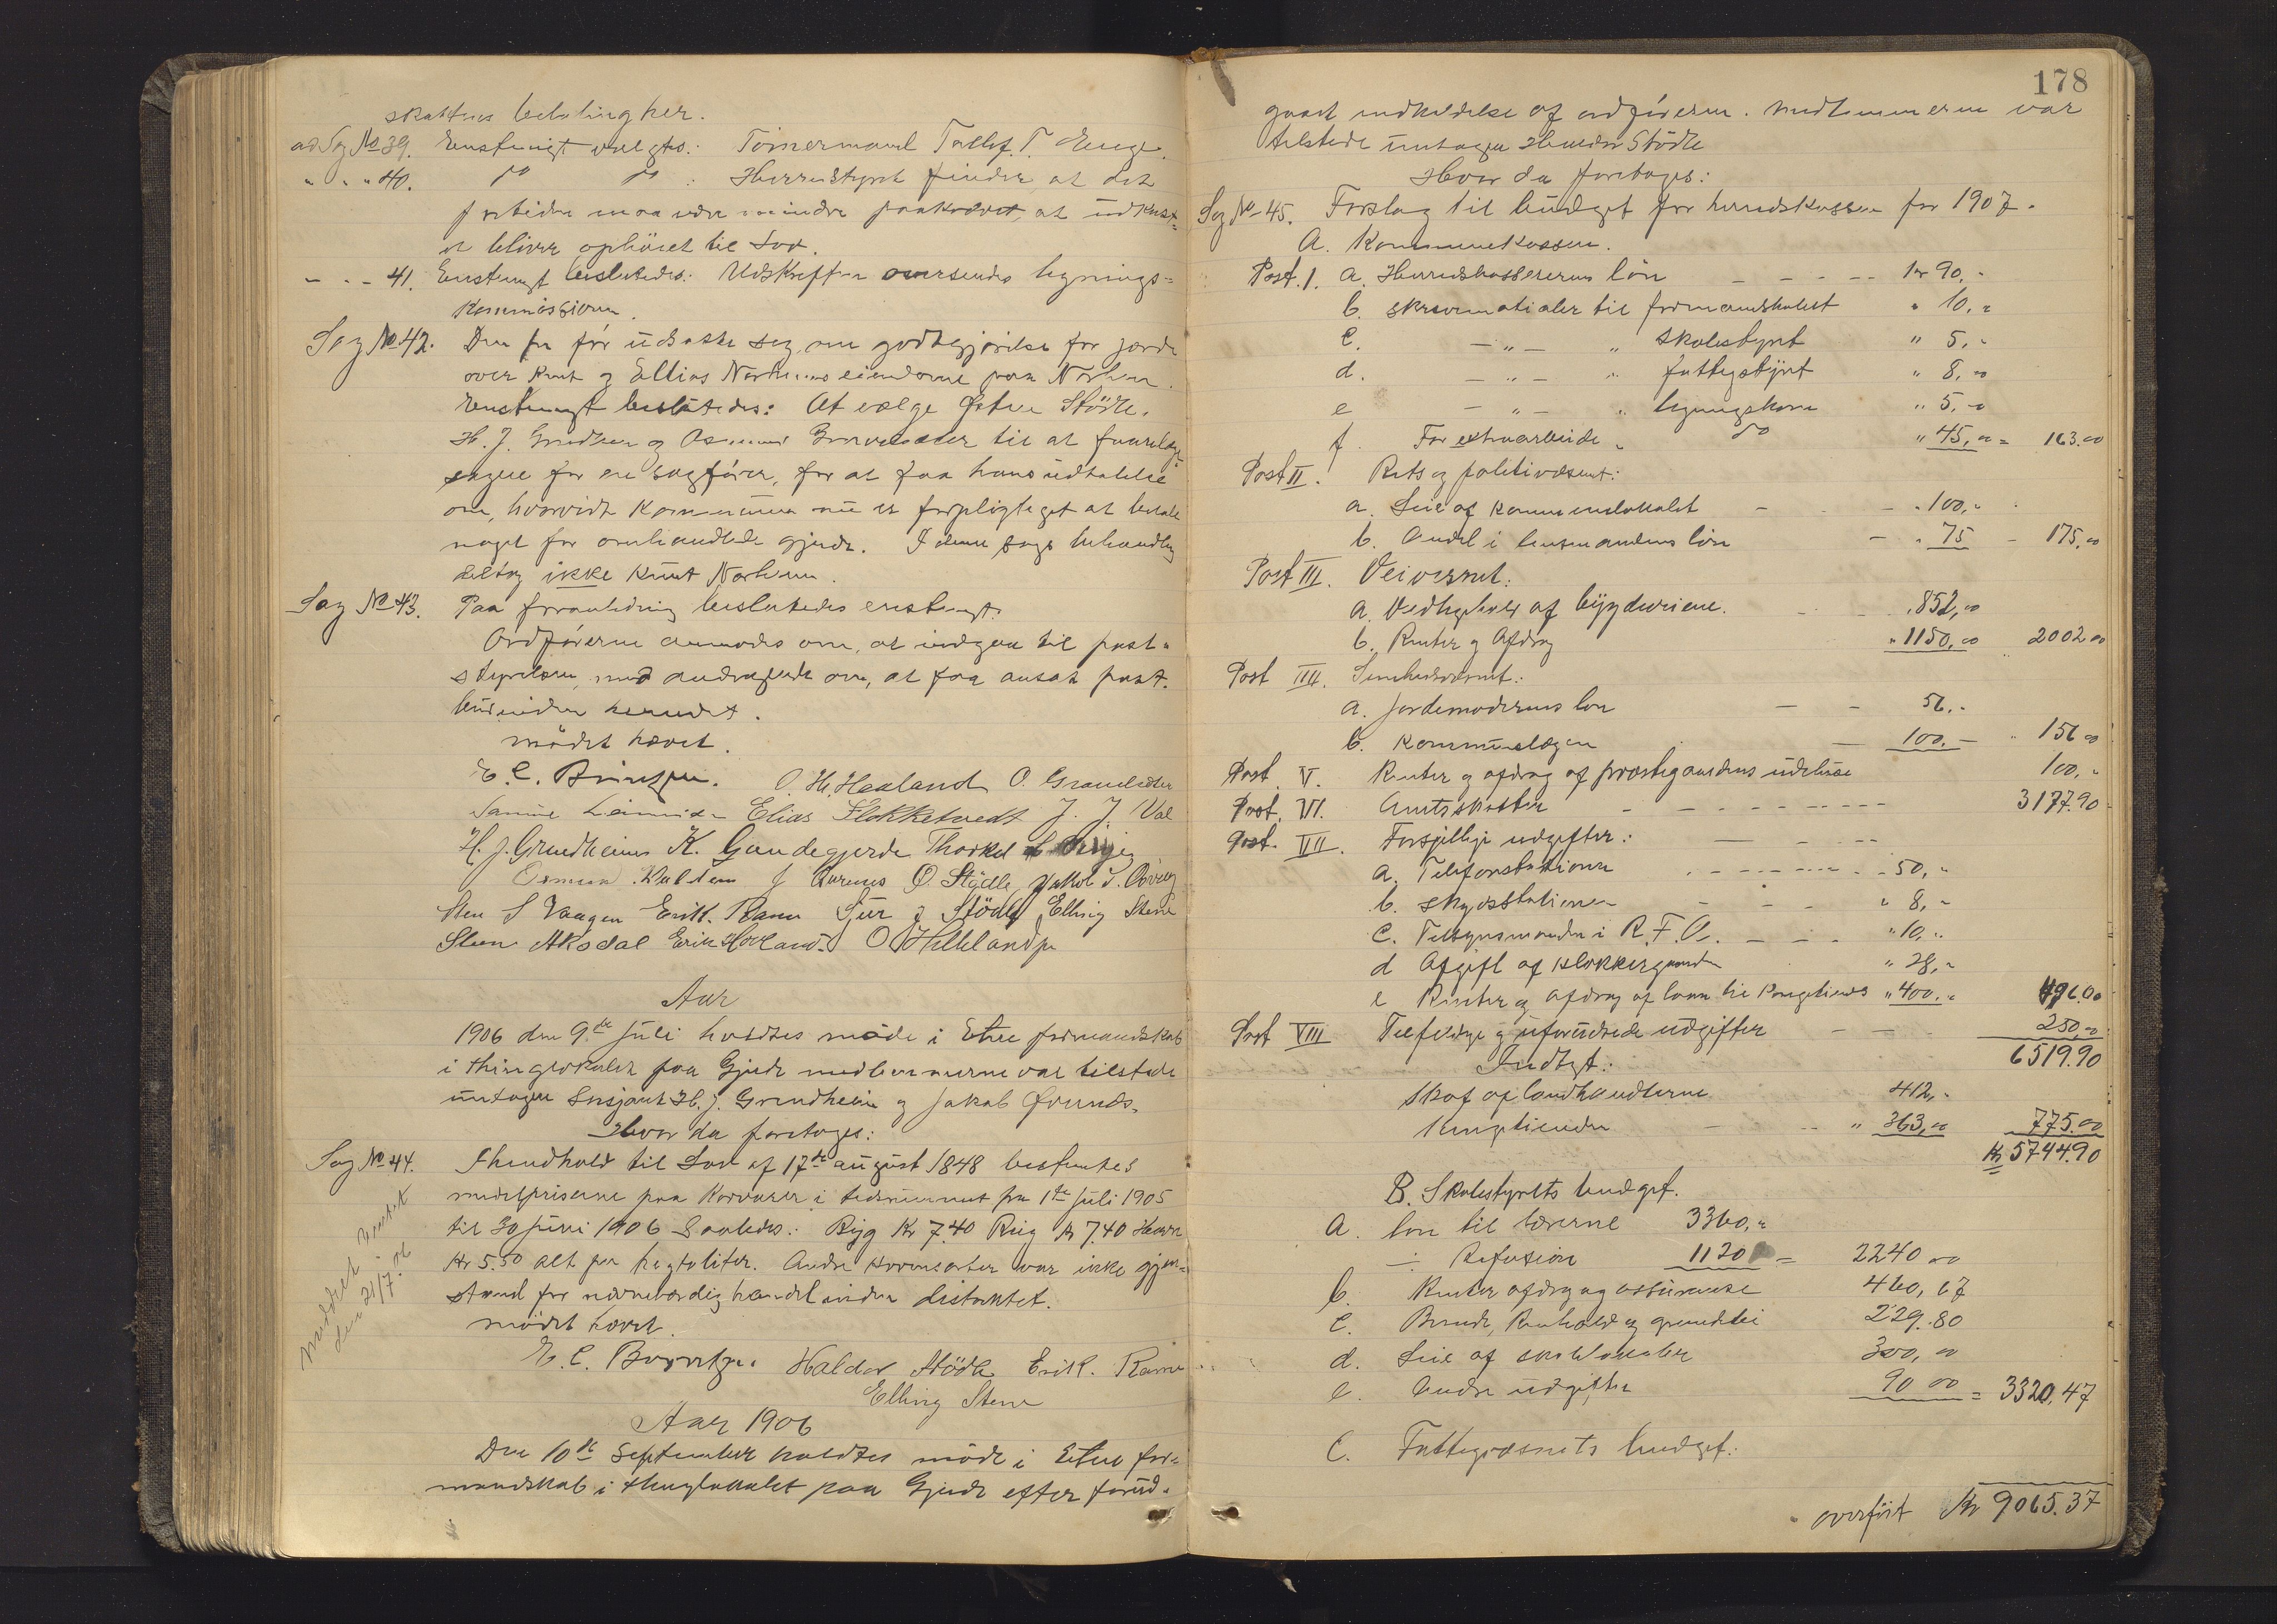 skattens betaling her.
ad Sag No 39. Enstemigt valgtes: Tömermand Tollef. T. Enge.
" " " 40. do do: Herredstyret finder, at det
fortiden maa være mindre paakrævet, at udkast=
et bliver ophöiet til Lov.
" - - 41. Enstemigt besluttedes: Udskriften oversendes lignings=
kommissionen.
Sag No 42. Den fra för udsatte sag om godtgjörelse for gjerde
over Knut og Ellias eiendomme paa
Enstemigt besluttedes: At vælge Östen Stödle,
H. J. Grindheim og Osmund til at forelægge
sagen for en sagförer, for at faa hans udtalelse
om, hvorvidt Kommunen nu er forpligtiget at betale
noget for omhandlede gjerde. I denne sags behandling
deltog ikke Knut
Sag No 43. Paa foranledning besluttedes enstemigt:
Ordföreren anmodes om, at indgaa til post=
styrelsen med andragende om, at faa ansat post=
bud inden herredet.
mödet hævet.
E. C. Börretzen. O. H. Haaland O. Grannesæter
Elias Flokketvedt J. J. Væl
H. J. Grindheim K. Gundegjerde Thorkel
Osmund O. Stödle Jakob
Sten S Vaagen Erik. Ramn Siur J Stödle Elling Stene
Sten Aksdal Erik Hovland O Hellelandjr
Aar
1906 den 9de Juli holdtes möde i Etne formandskab
i thinglokalet paa Gjerde medlemmerne var tilstede
untagen H. J. Grindheim og Jakob
Hvor da foretoges:
Sag No 44. I henhold til Lov af 17de august 1848 bestemtes
middelpriserne paa Kornvarer i tidsrummet fra 1te Juli 1905
til 30 Juni 1906 Saaledes: Byg Kr 7.40 Rug Kr 7.40 Havre
Kr 5.50 alt per hegtoliter. Andre kornsorter var ikke gjen=
stand for nævneværdig handel inden distriktet.
mödet hævet.
Meddelt
den 21/7.06
E. C. Börretzen. Haldor Stödle Erik. Ramn
Elling Stene
Aar 1906
Den 10de September holdtes möde i Etne for=
mandskab i thinglokalet paa Gjerde efter forud=
178
gaaet indkaldelse af ordföreren. Medlemmerne var
tilstede untagen Haldor Stödle
Hvor da foretoges:
Sag No 45. Forslag til budget for herredskassen for 1907.
A. Kommunekassen.
Post. 1. a. Herredskassererens lön - - - - kr 90,-
b. skrivematerialer til formandskabet " 10,-
c. - " - " skolestyret " 5,-
d. - " - " fattigstyret " 8,00
e - " - " ligningskom " 5,-
f. For extraarbeide " do " 45,00 = 163.00
Post II. Rets og politivæsent:
a. Leie af kommunelokalet - - " 100,-
b. Andel i lensmandens lön - " 75 - 175,00
Post III. Veivæsnet:
a. Vedligehold af bygdeveiene. " 852,00
b. Renter og Afdrag " 1150,00 2002 00
Post IIII. Sundhedsvæsenet:
a. Jordemoderens lön - - 56,-
b. Kommunelægen - 100,- " 156 00
Post. V. Renter og afdrag af præstegaardens udehuse 100,-
Post. VI. Amtsskatten - - - - - 3177.90
Post. VII. Forsjellige udgifter: - - - -
a. Telefonstationen - - - - 50,-
b. skydsstationen - - - " 8,-
c. Tilsynsmanden i R.F.A. - - - " 10,-
d Afgift af klokkergaarden " 28,-
e Renter og Afdrag af laan til Kongetiende " 400,- 496.00
Post VIII Tilfeldige og uforudsede udgifter - - 250,00
6519.90
Indtegt:
Skat af landhandlerne 412,-
Kongetienden - " 363,00 775.00
Kr 5744.90
B. Skolestyrets budget.
a. lön til lærerne 3360,-
÷ Refusion 1120 = 2240 00
b. Renter afdrag og assurance 460,67
c. Brænde, Renhold og grundleie 229.80
d. Leie af skolelokaler 300,00
e. Andre udgifter 90 00 = 3320,47
C. Fattigvæsnets budget:
overfört Kr 9065.37